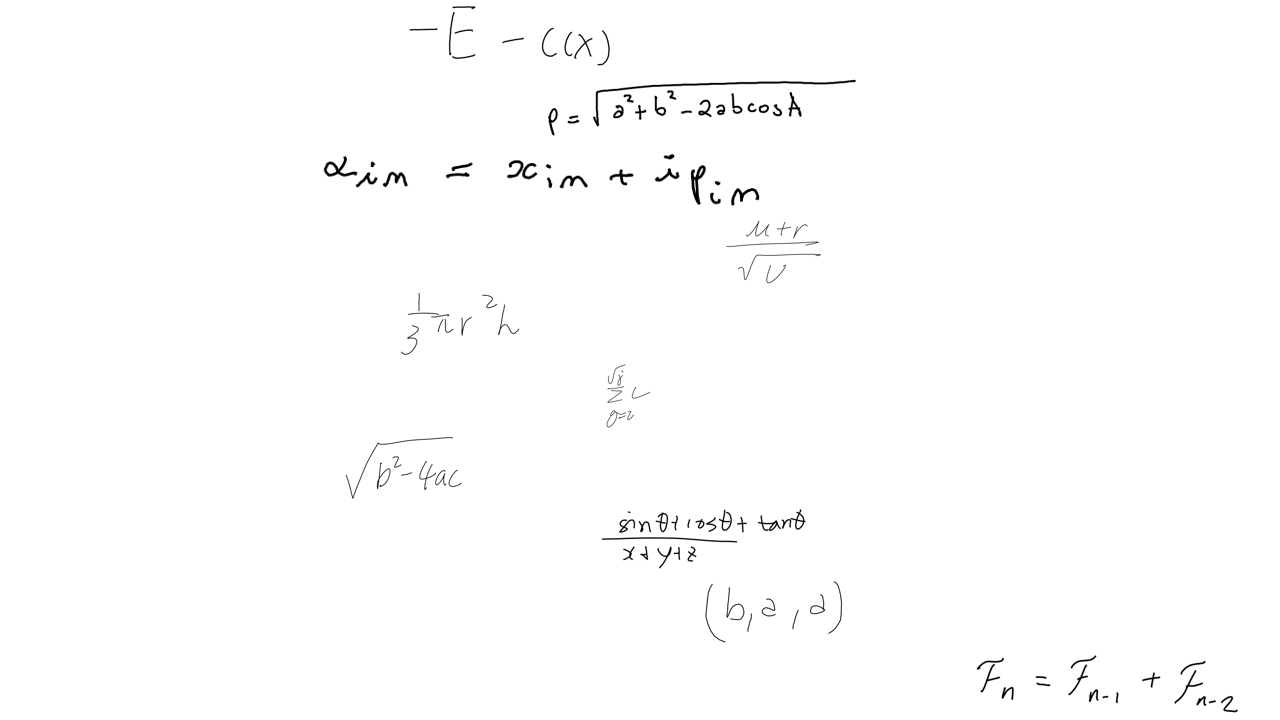 -E - C(X)
ρ = √(a² + b² - 2abcosA)
α_{in} = x_{in} + i p_{in}
(μ+r)/√υ
1/3 πr²h
√(b²-4ac)
(sinθ+cosθ+tanθ)/(x+y+z)
(b,a,a)
F_n = F_{n-1} + F_{n-2}